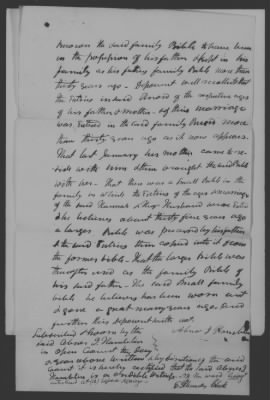 knows the said family Bible to have been
in the possession of his father & kept in his
family as his fathers family Bible more than
thirty years ago. Deponent well recollects that
the entries in said Record of the respective ages
of his father & mother & of their marriage
was entered in the said family Record more
than thirty years ago as it now appears.
That last January his mother came to
reside with him & then brought the said Bible
with her. That there was a small Bible in the
family in which the entries of the ages & marriage
of the said Hannah & her Husband were entered
& he believes about thirty five years ago
a larger Bible was procured by his father
& the said Entries then copied into it from
the former bible. That the larger bible was
thereafter used as the family Bible of
his said father. The said small family
bible he believes has been worn out
& gone a great many years ago. And
further this deponent saith not.
Subscribed & sworn by the
said Abner
in open Court the day
& year above written
Court it is hereby certified that the said Abner
is a credible witness
Clerk